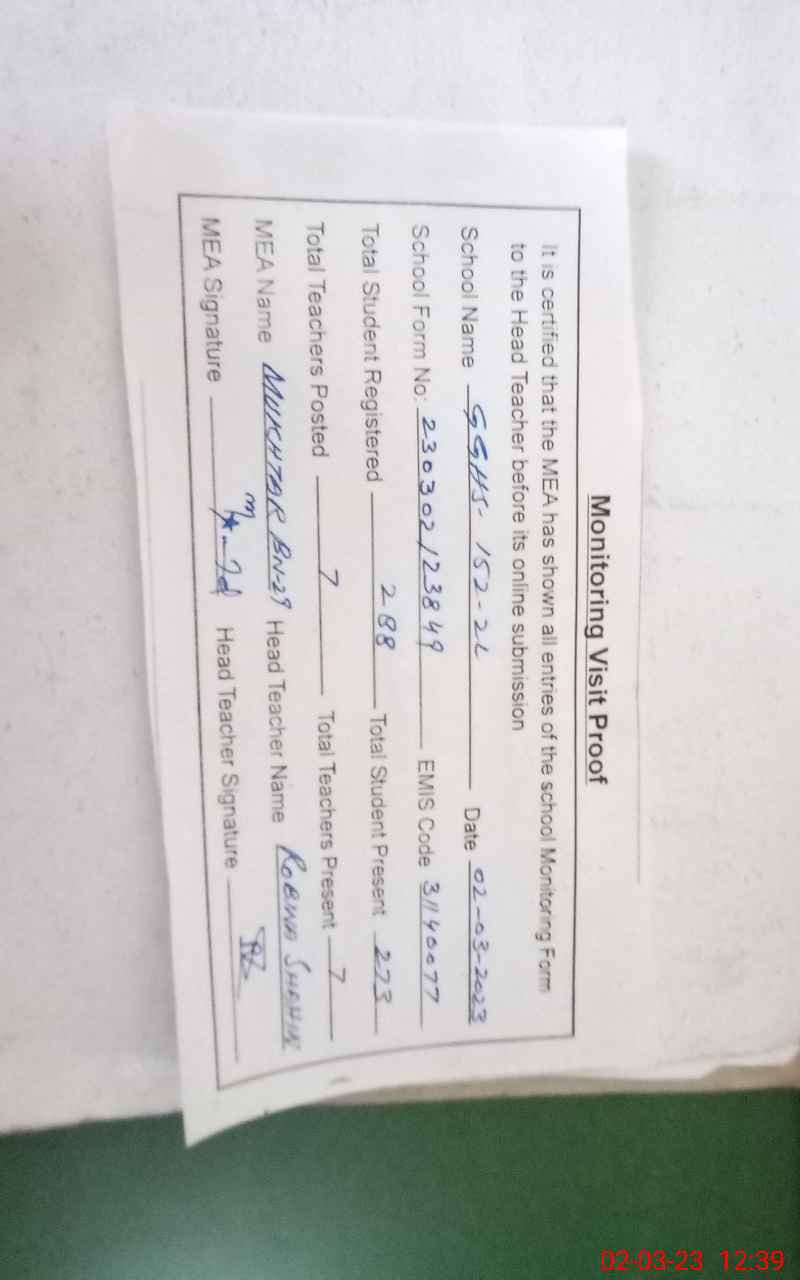 Monitoring Visit Proof
It is certified that the MEA has shown all entries of the school Monitoring Form
to the Head Teacher before its online submission
School Name GGHS- 152-2L Date 02-03-2023
School Form No: 230302123849 EMIS Code 31140077
Total Student Registered 288 Total Student Present 273
Total Teachers Posted 7 Total Teachers Present 7
MEA Name MUKHTAR BN-29 Head Teacher Name ROBINA SHAHIN
MEA Signature Head Teacher Signature
02-03-23 12:39